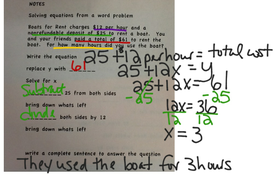 NOTES
Solving equations from a word problem
Boats for Rent charges $12 per hour and a
nonrefundable deposit of $25 to rent a boat. You
and your friends paid a total of $61 to rent the
boat. For how many hours did you use the boat?
Write the equation 25 + 12 per hour = total cost
replace y with 61 25 + 12x = y
Solve for x 25 + 12x = 61
Subtract 25 from both sides -25 -25
bring down whats left 12x = 36
divide both sides by 12 12 12
bring down whats left x = 3
write a complete sentence to answer the question
They used the boat for 3 hours